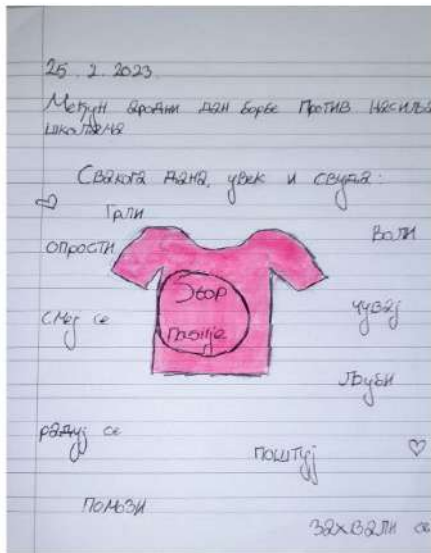 25. 2. 2023.
Међун ародни дан борбе Против насиља
школама
Свакога дана, увек и свуда:
Грли
Воли
опрости
Stop
смеј се
чувај
nasilje
Љуби
радуј се
поштуј
помози
захвали се